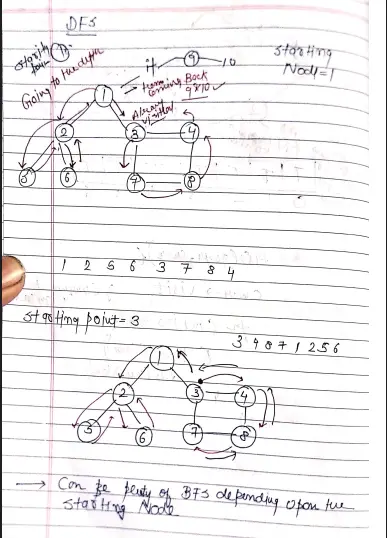 DFS
Starting
from 1
Starting
Node=1
Going to the depth
9 10
Coming Back
9810
1
Already
Visited
2 3 4
5 6 7 8
1 2 5 6 3 7 8 4
Starting point = 3
3 4 8 7 1 2 5 6
1
2 3 4
5 6 7 8
→ Can be plenty of BFS depending upon the
Starting Node